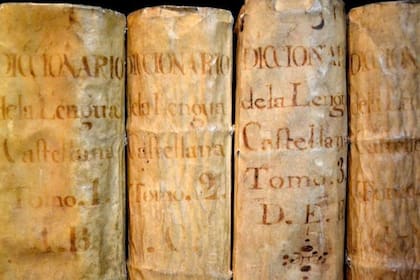 DICCIONARIO
dela Lengua
Castellana
Tomo. 1.
A. B.
DICCIONARIO
dela Lengua
Castellana
Tomo. 2.
C.
DICCIONA
dela Leng
Castellan
Tomo. 3.
D. E. F
DICCI
dela
Castell
Tomo.